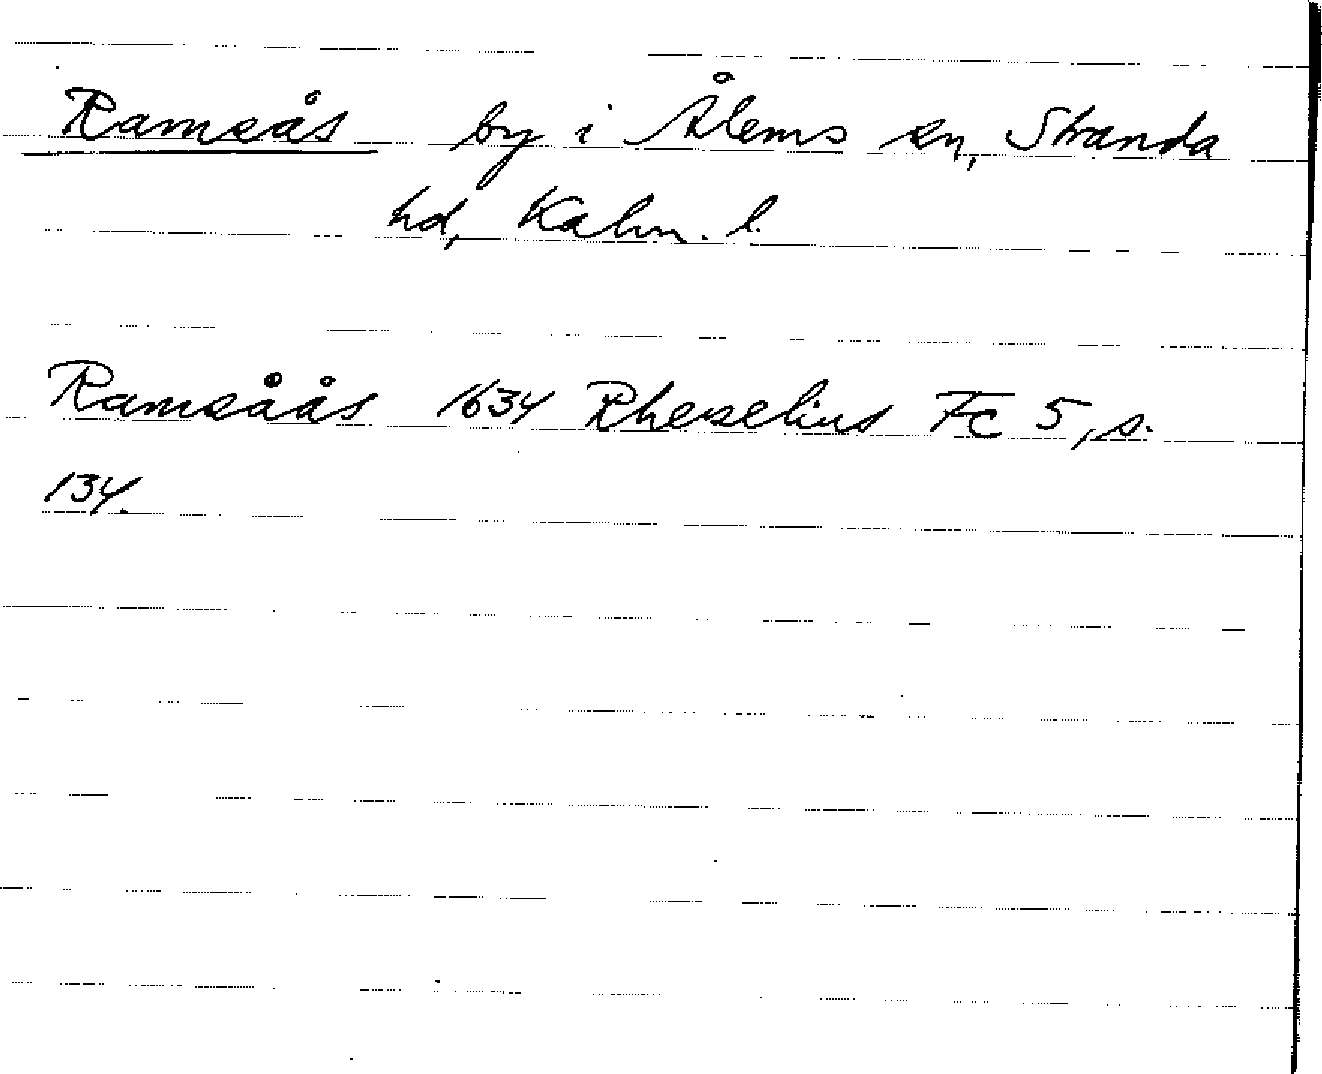 Ramsås by i Ålems sn, Stranda
hd, Kalm. l.
Ramsåås 1634 Rhezelius Fc 5, s.
134.